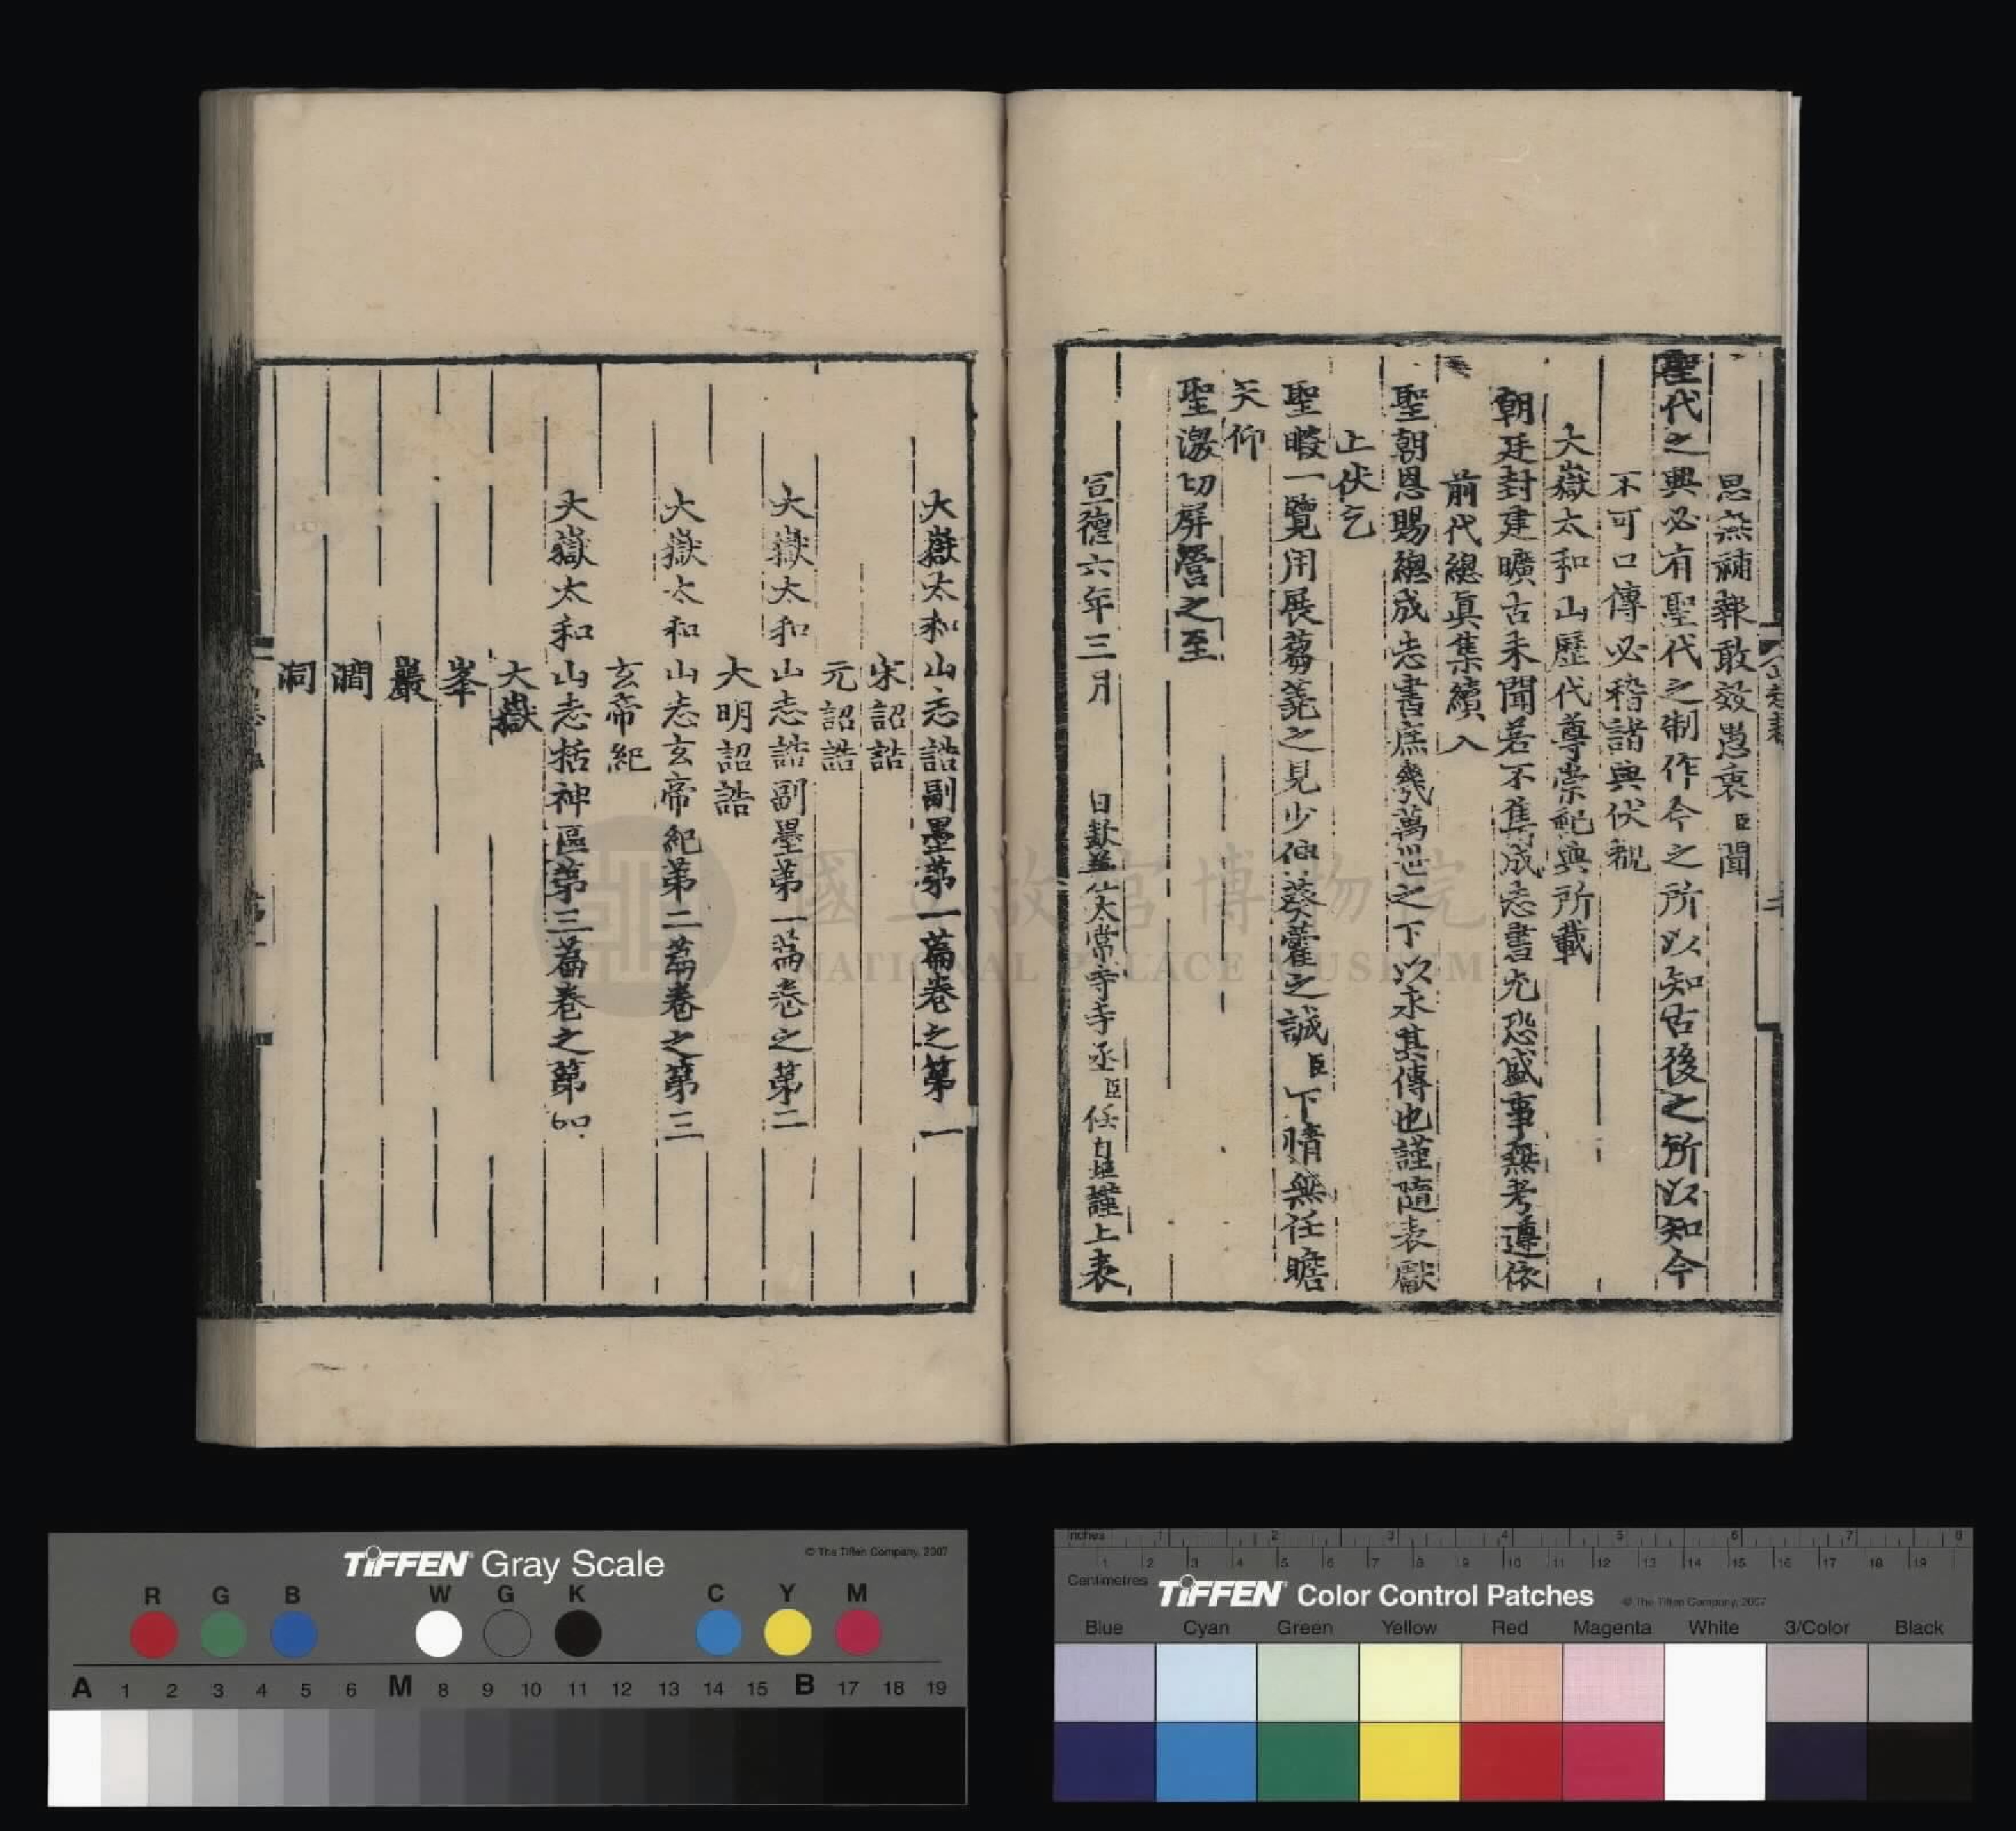 思無補報敢效愚衷臣聞
聖代之興必有聖代之制作今之所以知古後之所以知今
不可口傳必稽諸典伏覩
大嶽太和山歷代尊崇祀典所載
朝廷封建曠古未聞若不集成志書尤恐盛事無考遵依
前代總真集續入
聖朝恩賜總成志書庶幾萬世之下以永其傳也謹隨表獻
上伏乞
聖暇一覽用展蒭蕘之見少伸葵藿之誠臣下情無任瞻
天仰
聖激切屏營之至
宣德六年三月 日欽差太常寺寺丞臣任自垣謹上表
大嶽太和山志誥副墨第一篇卷之第一
宋詔誥
元詔誥
大嶽太和山志誥副墨第一篇卷之第二
大明詔誥
大嶽太和山志玄帝紀第二篇卷之第三
玄帝紀
大嶽太和山志括神區第三篇卷之第四
大嶽
峯
巖
澗
洞
國立故宮博物院
NATIONAL PALACE MUSEUM
TIFFEN Gray Scale
© The Tiffen Company, 2007
R G B W G K C Y M
A 1 2 3 4 5 6 M 8 9 10 11 12 13 14 15 B 17 18 19
Inches 1 2 3 4 5 6 7 8
Centimetres 1 2 3 4 5 6 7 8 9 10 11 12 13 14 15 16 17 18 19
TIFFEN Color Control Patches
© The Tiffen Company, 2007
Blue Cyan Green Yellow Red Magenta White 3/Color Black